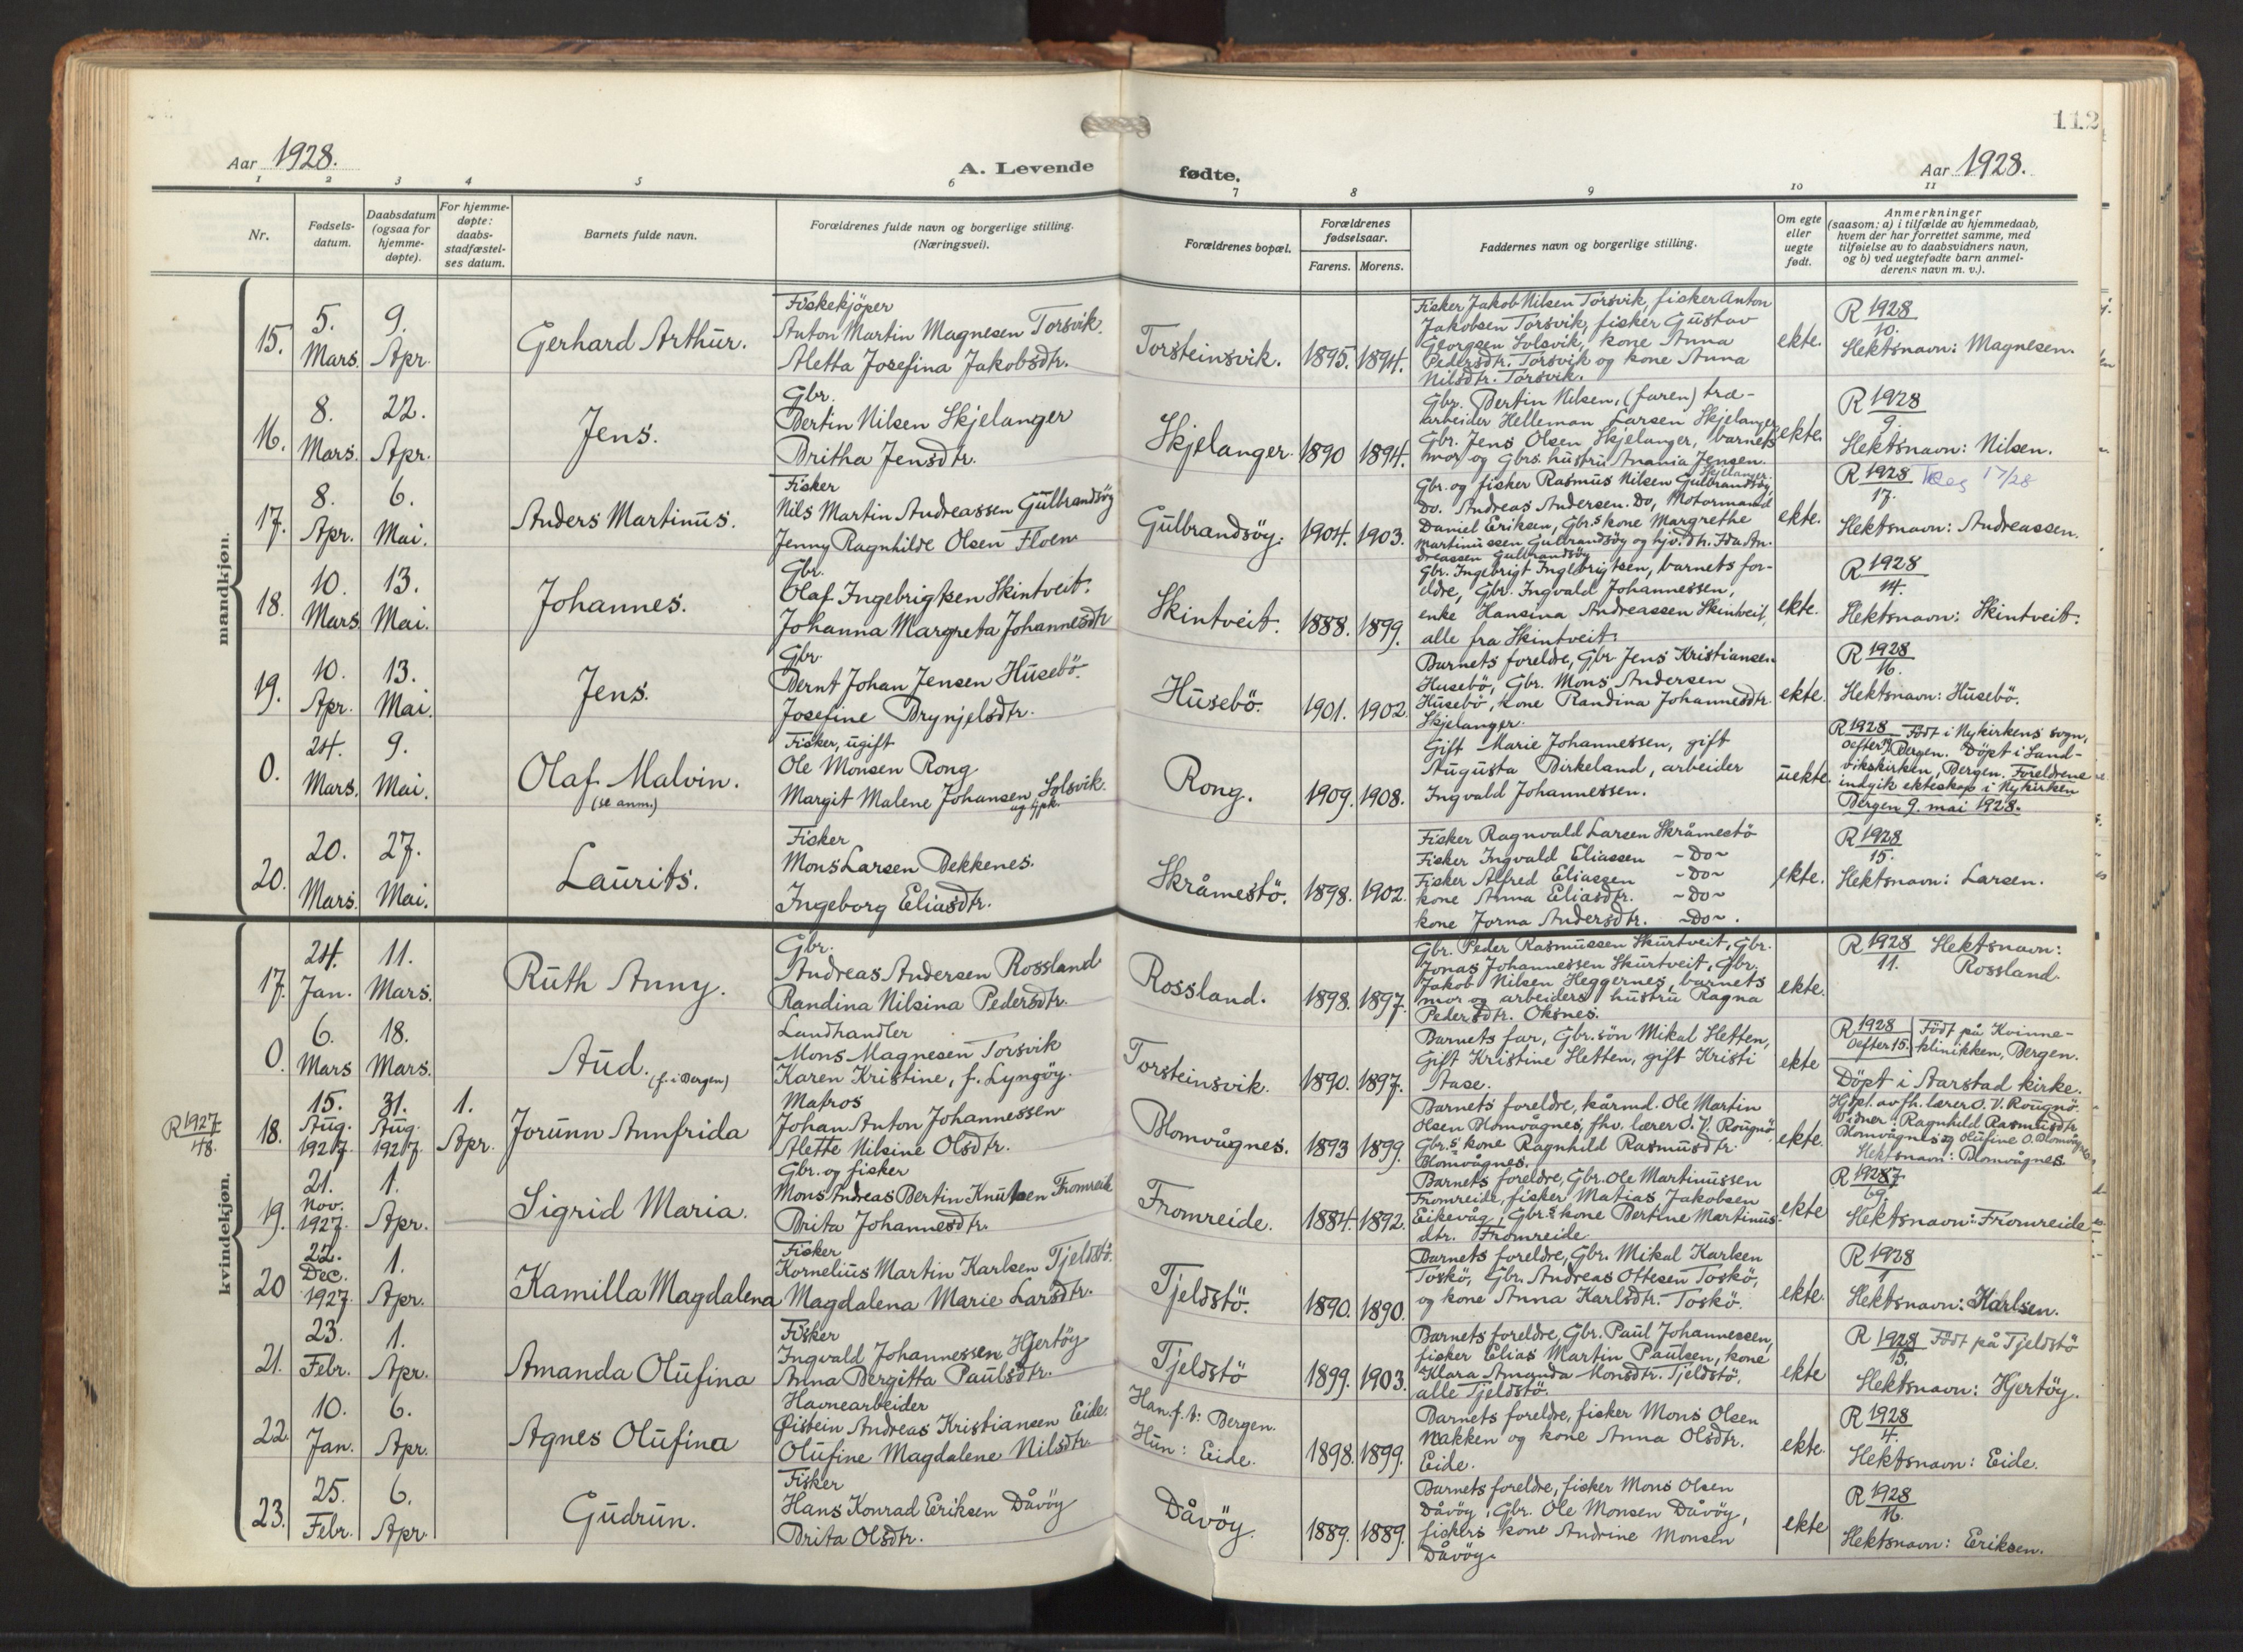 112
Aar 1928.
A. Levende
fødte.
Aar 1928.
1 2 3 4 5 6 7 8 9 10 11
Nr.
Fødsels-
datum.
Daabsdatum
(ogsaa for
hjemme-
døpte).
For hjemme-
døpte:
daabs-
stadfæstel-
ses datum.
Barnets fulde navn.
Forældrenes fulde navn og borgerlige stilling.
(Næringsvei).
Forældrenes bopæl.
Forældrenes
fødselsaar.
Farens. Morens.
Faddernes navn og borgerlige stilling.
Om egte
eller
uegte
født.
Anmerkninger
(saasom: a) i tilfælde av hjemmedaab,
hvem der har forrettet samme, med
tilføielse av to daabsvidners navn,
og b) ved uegtefødte barn anmel-
derens navn m. v.).
mandkjøn.
15.
5.
Mars.
9.
Apr.
Gerhard Arthur.
Fiskekjöper
Anton Martin Magnesen Torsvik.
Aletta Josefina Jakobsdtr.
Torsteinsvik.
1895. 1894.
Fisker Jakob Nilsen Torsvik, fisker Anton
Jakobsen Torsvik, fisker Gustav
Georgsen Solsvik, kone Anna
Pedersdtr. Torsvik og kone Anna
Nilsdtr. Torsvik.
ekte.
R 1928
10.
Slektsnavn: Magnesen.
16.
8.
Mars.
22.
Apr.
Jens.
Gbr.
Bertin Nilsen Skjelanger
Britha Jensdtr.
Skjelanger.
1890 1894.
Gbr. Bertin Nilsen, (faren) træ-
arbeider Helleman Larsen Skjelanger
Gbr. Jens Olsen Skjelanger, barnets
mor og Gbrs. hustru Anania Jensen
Skjelanger.
ekte.
R 1928
9.
Slektsnavn: Nilsen.
17.
8.
Apr.
6.
Mai.
Anders Martinus.
Fisker
Nils Martin Andreassen Gulbrandsöy
Jenny Ragnhilde Olsen Floen
Gulbrandsöy.
1904. 1903.
Gbr. og fisker Rasmus Nilsen Gulbrandsöy,
Do. Andreas Andersen. Do, Motormand
Daniel Eriksen, Gbr.s kone Margrethe
Martinussen Gulbrandsöy og hjv. dtr. Ida An-
dreassen Gulbrandsöy
ekte.
R 1928 17/28
17.
Slektsnavn: Andreassen.
18.
10.
Mars
13.
Mai.
Johannes.
Gbr.
Olaf Ingebrigtsen Skintveit.
Johanna Margreta Johannesdtr
Skintveit.
1888. 1899.
Gbr. Ingebrigt Inglbrigtsen, barnets for-
eldre, Gbr. Ingvald Johannessen,
enke Hansina Andreassen Skintveit,
alle fra Skintveit.
ekte.
R 1928
14.
Slektsnavn: Skintveit.
19.
10.
Apr.
13.
Mai.
Jens.
Gbr.
Bernt Johan Jensen Husebö.
Josefine Brynjelsdtr.
Husebö.
1901. 1902.
Barnets foreldre, Gbr. Jens Kristiansen
Husebö, Gbr. Mons Andersen
Husebö, kone Randina Johannesdtr.
Skjelanger.
ekte.
R 1928
16.
Slektsnavn: Husebö.
0.
24.
Mars.
9.
Mai.
Olaf Malvin.
(se anm.)
Fisker, ugift
Ole Monsen Rong
Margit Malene Johansen Solsvik.
ug tjpk.
Rong.
1909. 1908.
Gift Marie Johannessen, gift
Augusta Birkeland, arbeider
Ingvald Johannessen.
uekte.
R 1928 Född i Nykirkens sogn,
0efter Bergen. Döpt i Sand-
vikskirken, Bergen. Foreldrene
indgik ekteskap i Nykirken
Bergen 9. mai 1928.
20.
20.
Mars.
27.
Mai.
Laurits.
Fisker
Mons Larsen Bekkenes.
Ingeborg Eliasdtr.
Skråmestö.
1898. 1902.
Fisker Ragnvald Larsen Skråmestö
Fisker Ingvald Eliassen ~Do~
Fisker Alfred Eliassen ~Do~
kone Anna Eliasdtr. ~Do~
kone Jorna Andersdtr. ~Do~.
ekte.
R 1928
15.
Slektsnavn: Larsen.
kvindekjøn.
17.
24.
Jan.
11.
Mars.
Ruth Anny.
Gbr.
Andreas Andersen Rossland
Randina Nilsina Pedersdtr.
Rossland.
1898. 1897.
Gbr. Peder Rasmussen Skurtveit, Gbr.
Jonas Johannessen Skurtveit, Gbr.
Jakob Nilsen Heggernes, barnets
mor og arbeiders hustru Ragna
Pedersdtr. Oksnes.
ekte.
R 1928 Slektsnavn:
11. Rossland.
0.
6.
Mars
18.
Mars.
Aud.
(f. i Bergen)
Landhandler
Mons Magnesen Torsvik
Karen Kristine, f. Lyngöy.
Torsteinsvik.
1890. 1897.
Barnets far, Gbr.sön Mikal Sletten,
Gift Kristine Sletten, gift Kristi
Aase.
ekte
R 1928 Född på Kvinne-
0efter 15. klinikken, Bergen.
Döpt i Aarstad kirke.
R 1927
48.
18.
15.
Aug.
1927.
31.
Aug.
1927.
1.
Apr.
Jorunn Annfrida
Matros
Johan Anton Johannessen
Alette Nilsine Olsdtr.
Blomvågnes.
1893 1899.
Barnets foreldre, kårmd. Ole Martin
Olsen Blomvågnes, fhv. lærer O. V. Rougnö
Gbr.s kone Ragnhild Rasmusdtr
Blomvågnes.
ekte.
Hjdpt. av fh. lærer O. V. Rougnö.
Vidner: Ragnhild Rasmusdtr
Blomvågnes og Olufine O. Blomvågnes
Slektsnavn: Blomvågnes.
19.
21.
Nov.
1927.
1.
Apr.
Sigrid Maria.
Gbr. og fisker
Mons Andreas Bertin Knutsen Fromreide
Brita Johannesdtr.
Fromreide.
1884. 1892.
Barnets foreldre, Gbr. Ole Martinussen
Fromreide, fisker Matias Jakobsen
Eikevåg, Gbr.s kone Bertine Martinus-
dtr. Fromreide
ekte
R 19287
69.
Slektsnavn: Fromreide
20
22.
Dec.
1927
1.
Apr.
Kamilla Magdalena
Fisker
Kornelius Martin Karlsen Tjeldstö.
Magdalena Marie Larsdtr.
Tjeldstö.
1890. 1890.
Barnets foreldre, Gbr. Mikal Karlsen
Toskö, Gbr. Andreas Ottesen Toskö,
og kone Anna Karlsdtr. Toskö.
ekte.
R 1928
1
Slektsnavn: Karlsen.
21.
23.
Febr.
1.
Apr.
Amanda Olufina
Fisker
Ingvald Johannessen Hjertöy
Anna Bergitta Paulsdtr.
Tjeldstö
1899. 1903.
Barnets foreldre, Gbr. Paul Johannessen,
fisker Elias Martin Paulsen, kone
Klara Amanda Monsdtr. Tjeldstö,
alle Tjeldstö.
ekte
R 1928 Född på Tjeldstö
15.
Slektsnavn: Hjertöy.
22.
10.
Jan.
6.
Apr.
Agnes Olufina
Havnearbeider
Øistein Andreas Kristiansen Eide.
Olufine Magdalene Nilsdtr.
Han f. t: Bergen.
Hun: Eide.
1898. 1899.
Barnets foreldre, fisker Mons Olsen
Nakken og kone Anna Olsdtr.
Eide.
ekte.
R 1928
4.
Slektsnavn: Eide.
23.
25.
Febr.
6.
Apr.
Gudrun.
Fisker
Hans Konrad Eriksen Dåvöy
Brita Olsdtr.
Dåvöy.
1889. 1889.
Barnets foreldre, fisker Mons Olsen
Dåvöy, Gbr. Ole Monsen Dåvöy,
fiskers kone Andrine Monsen
Dåvöy.
ekte
R 1928
16.
Slektsnavn: Eriksen.